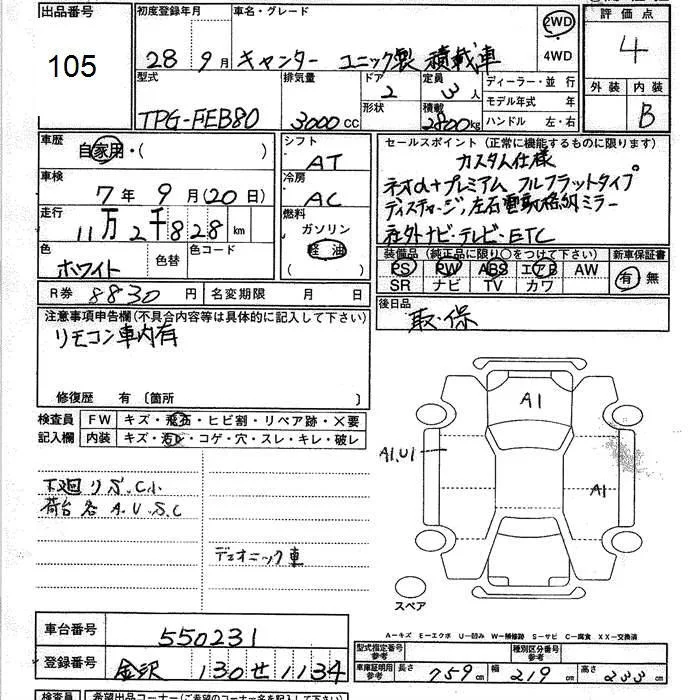 出品番号 初度登録年月 車名・グレード 評価点
105 28 9月 キャンター ユニック製 積載車 2WD 4WD 4
型式 排気量 ドア 定員 ディーラー・並行 外装 内装
TPG-FEB80 3000CC 2 3人 モデル年式 年 B
形状 積載 2800kg ハンドル 左・右
車歴 自家用・( ) シフト AT セールスポイント (正常に機能するものに限ります)
カスタム仕様
車検 7年 9月(20日) 冷房 AC ネオα+プレミアム フルフラットタイプ
走行 11万2千828km 燃料 ガソリン 軽油 ( )
社外ナビ・テレビ・ETC
色 ホワイト 色替 色コード 装備品 (純正品に限り○をつけて下さい) 新車保証書
PS PW ABS エアB AW 有 無
SR ナビ TV カワ
R券 8830円 名変期限 月 日 後日品
取・保
注意事項申告欄(不具合内容等は具体的に記入して下さい)
リモコン車内有
修復歴 有 〔箇所 〕
検査員 FW キズ・飛石・ヒビ割・リペア跡・×要
記入欄 内装 キズ・汚れ・コゲ・穴・スレ・キレ・破レ
A1
A1,U1
A1
下廻り S.C1
荷台 各 A.U.S.C
デュオニック車
スペア
車台番号 550231 A―キズ E―エクボ U―凹み W―補修跡 S―サビ C―腐食 XX―交換済
登録番号 金沢 130 せ 1134 型式指定番号 参考 種別区分番号 参考
車庫証明用 参考 長さ 759cm 幅 219cm 高さ 233cm
検査員 希望出品コーナー(ご希望のコーナー名を記入下さい)